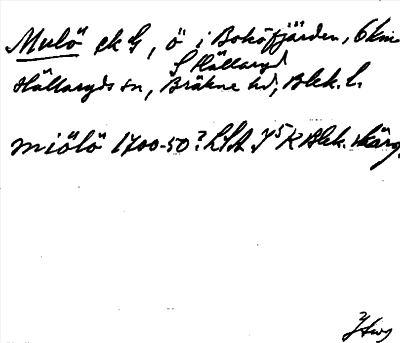 Mulö ek G, ö i Boköfjärden, 6 km
S Hällaryd
Hällaryds sn, Bräkne hd, Blek. l.
miölö 1700-50? LSA J5 K Blek. skärg.